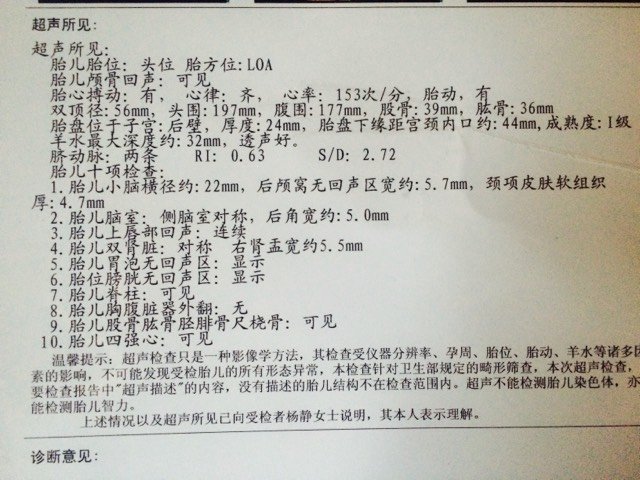 超声所见:
超声所见:
胎儿胎位: 头位 胎方位:LOA
胎儿颅骨回声: 可见
胎心搏动: 有, 心律: 齐, 心率: 153次/分, 胎动, 有
双顶径:56mm, 头围:197mm, 腹围:177mm, 股骨:39mm, 肱骨:36mm
胎盘位于子宫:后壁, 厚度:24mm, 胎盘下缘距宫颈内口约:44mm,成熟度:I级
羊水最大深度约:32mm, 透声好。
脐动脉: 两条 RI: 0.63 S/D: 2.72
胎儿十项检查:
1.胎儿小脑横径约:22mm, 后颅窝无回声区宽约:5.7mm, 颈项皮肤软组织
厚:4.7mm
2.胎儿脑室: 侧脑室对称, 后角宽约:5.0mm
3.胎儿上唇部回声: 连续
4.胎儿双肾脏: 对称 右肾盂宽约5.5mm
5.胎儿胃泡无回声区: 显示
6.胎位膀胱无回声区: 显示
7.胎儿脊柱: 可见
8.胎儿胸腹脏器外翻: 无
9.胎儿股骨肱骨胫腓骨尺桡骨: 可见
10.胎儿四强心: 可见
温馨提示: 超声检查只是一种影像学方法, 其检查受仪器分辨率、孕周、胎位、胎动、羊水等诸多因
素的影响, 不可能发现受检胎儿的所有形态异常, 本检查针对卫生部规定的畸形筛查, 本次超声检查,
要检查报告中"超声描述"的内容, 没有描述的胎儿结构不在检查范围内。超声不能检测胎儿染色体, 亦
能检测胎儿智力。
上述情况以及超声所见已向受检者杨静女士说明, 其本人表示理解。
诊断意见: